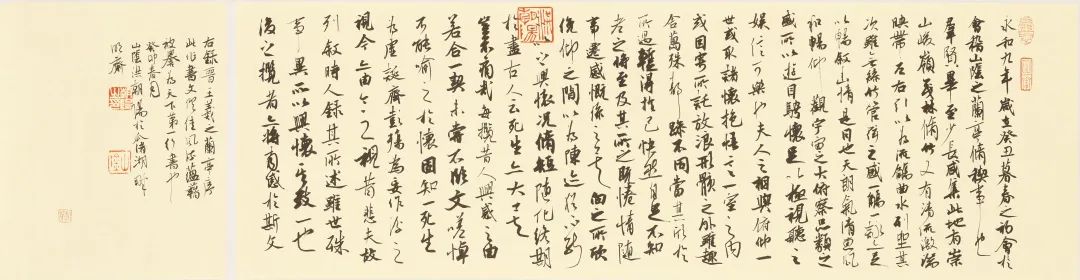 永和九年歲在癸丑暮春之初會於
會稽山陰之蘭亭脩禊事也
羣賢畢至少長咸集此地有崇
山峻嶺茂林脩竹又有清流激湍
映帶左右引以為流觴曲水列坐其
次雖無絲竹管弦之盛一觴一詠亦足
以暢敘幽情是日也天朗氣清惠風
和暢仰觀宇宙之大俯察品類之
盛所以遊目騁懷足以極視聽之
娛信可樂也夫人之相與俯仰一
世或取諸懷抱悟言一室之內
或因寄所託放浪形骸之外雖趣
舍萬殊靜躁不同當其欣於
所遇暫得於己快然自足不知
老之將至及其所之既惓情隨
事遷感慨係之矣向之所欣
俛仰之間以為陳跡猶不
以之興懷況脩短隨化終期
於盡古人云死生亦大矣
豈不痛哉每攬昔人興感之由
若合一契未嘗不臨文嗟悼
不能喻之於懷固知一死生
為虛誕齊彭殤為妄作後之
視今亦由今之視昔悲夫故
列敘時人錄其所述雖世殊
事異所以興懷其致一也
後之攬者亦將有感於斯文
右錄晉王羲之蘭亭序
此作書文俱佳風流蘊藉
被譽為天下第一行書也
癸卯春月
山陰洪